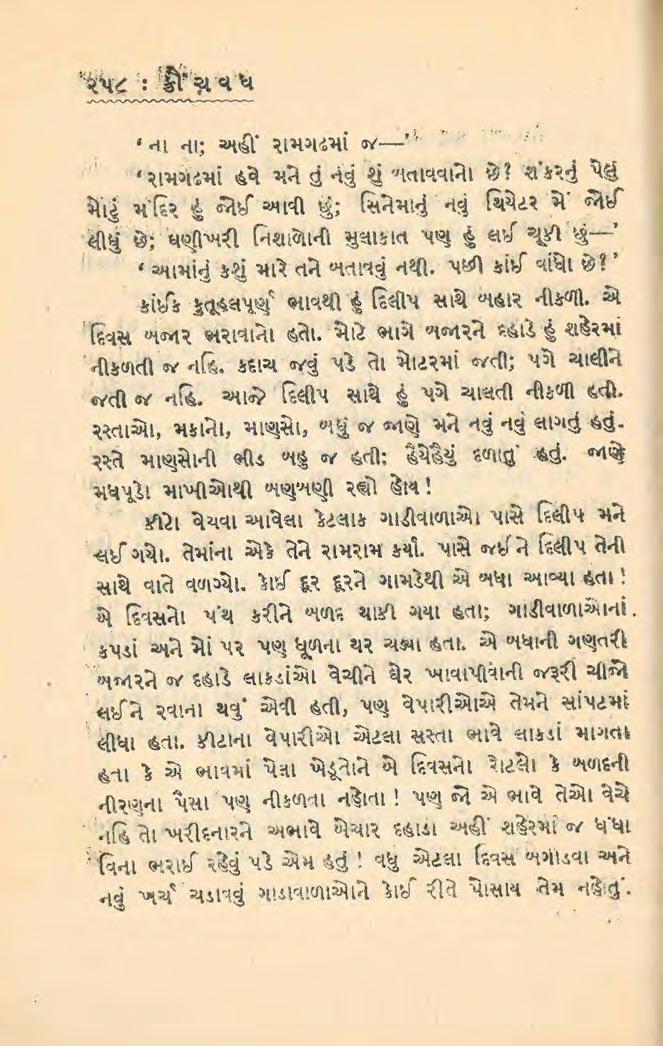 ૨૫૮ : ક્રૌંચવધ
‘ના ના; અહીં રામગઢમાં જ—’
‘રામગઢમાં હવે મને તું નવું શું બતાવવાનો છે? શંકરનું પેલું
મોટું મંદિર હું જોઈ આવી છું; સિનેમાનું નવું થિયેટર મેં જોઈ
લીધું છે; ઘણીખરી નિશાળોની મુલાકાત પણ હું લઈ ચૂકી છું—’
‘આમાંનું કશું મારે તને બતાવવું નથી. પછી કાંઈ વાંધો છે?’
કાંઈક કુતૂહલપૂર્ણ ભાવથી હું દિલીપ સાથે બહાર નીકળી. એ
દિવસ બજાર ભરાવાનો હતો. મોટે ભાગે બજારને દહાડે હું શહેરમાં
નીકળતી જ નહિ. કદાચ જવું પડે તો મોટરમાં જતી; પગે ચાલીને
જતી જ નહિ. આજે દિલીપ સાથે હું પગે ચાલતી નીકળી હતી.
રસ્તાઓ, મકાનો, માણસો, બધું જ જાણે મને નવું નવું લાગતું હતું.
રસ્તે માણસોની ભીડ બહુ જ હતી; હૈયેહૈયું દળાતું હતું. જાણે
મધપૂડો માખીઓથી બણબણી રહ્યો હોય!
કીટો વેચવા આવેલા કેટલાક ગાડીવાળાઓ પાસે દિલીપ મને
લઈ ગયો. તેમાંના એકે તેને રામરામ કર્યા. પાસે જઈને દિલીપ તેની
સાથે વાતે વળગ્યો. કોઈ દૂર દૂરને ગામડેથી એ બધા આવ્યા હતા!
બે દિવસનો પંથ કરીને બળદ થાકી ગયા હતા; ગાડીવાળાઓનાં
કપડાં અને મોં પર પણ ધૂળના થર ચડ્યા હતા. એ બધાની ગણતરી
બજારને જ દહાડે લાકડાંઓ વેચીને ઘેર ખાવાપીવાની જરૂરી ચીજો
લઈને રવાના થવું એવી હતી, પણ વેપારીઓએ તેમને સાંપટમાં
લીધા હતા. કીટાના વેપારીઓ એટલા સસ્તા ભાવે લાકડાં માગતા
હતા કે એ ભાવમાં પેલા ખેડૂતોને બે દિવસનો રોટલો કે બળદની
નીરણના પૈસા પણ નીકળતા નહોતા! પણ જો એ ભાવે તેઓ વેચે
નહિ તો ખરીદનારને અભાવે બેચાર દહાડા અહીં શહેરમાં જ ધંધા
વિના ભરાઈ રહેવું પડે એમ હતું! વધુ એટલા દિવસ બગાડવા અને
નવું ખર્ચ ચડાવવું ગાડાવાળાઓને કોઈ રીતે પોસાય તેમ નહોતું.